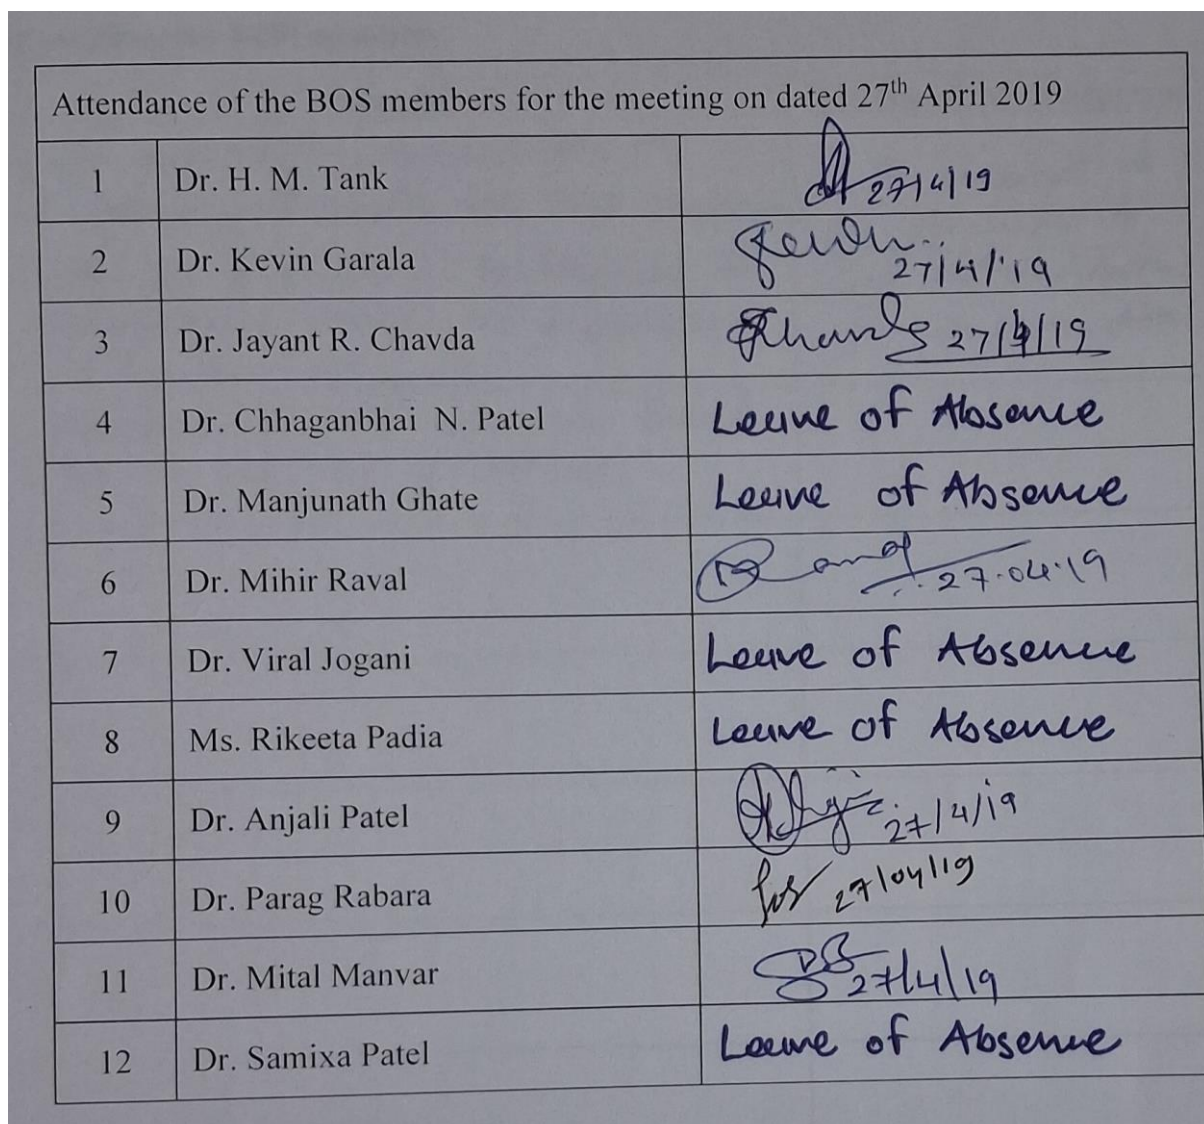 Attendance of the BOS members for the meeting on dated 27th April 2019
1 Dr. H. M. Tank 27/4/19
2 Dr. Kevin Garala Kevin 27/4/'19
3 Dr. Jayant R. Chavda 27/4/19
4 Dr. Chhaganbhai N. Patel Leave of Absence
5 Dr. Manjunath Ghate Leave of Absence
6 Dr. Mihir Raval 27.04.19
7 Dr. Viral Jogani Leave of Absence
8 Ms. Rikeeta Padia Leave of Absence
9 Dr. Anjali Patel 27/4/19
10 Dr. Parag Rabara 27/04/19
11 Dr. Mital Manvar 27/4/19
12 Dr. Samixa Patel Leave of Absence